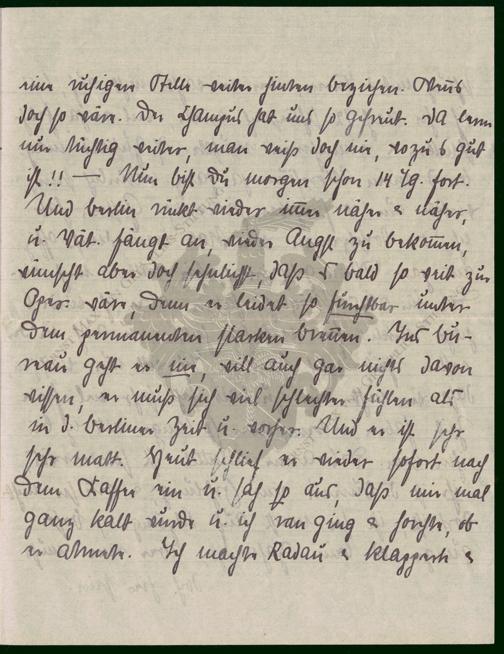 eine ruhigen Stelle weiter hinten beziehen. Wenns
doch so wäre. Der Champus hat uns so gefreut. Da lern
nur tüchtig weiter, man weiß doch nie, wozu s gut
ist!! — Nun bist Du morgen schon 14 Tg. fort.
Und Berlin rückt wieder immer näher & näher,
u. Vat. fängt an, wieder Angst zu bekommen,
wünscht aber doch sehnlichst, daß es bald so weit zur
Oper. wäre, denn er leidet so furchtbar unter
dem permanenten starken brennen. Ins Bü-
reau geht er nie, will auch gar nichts davon
wissen, er muß sich viel schlechter fühlen als
in d. Berliner Zeit u. vorher. Und er ist sehr
sehr matt. Heut schlief er wieder sofort nach
dem Kaffee ein u. sah so aus, daß mir mal
ganz kalt wurde u. ich ran ging & horchte, ob
er atmete. Ich machte Radau & klapperte &